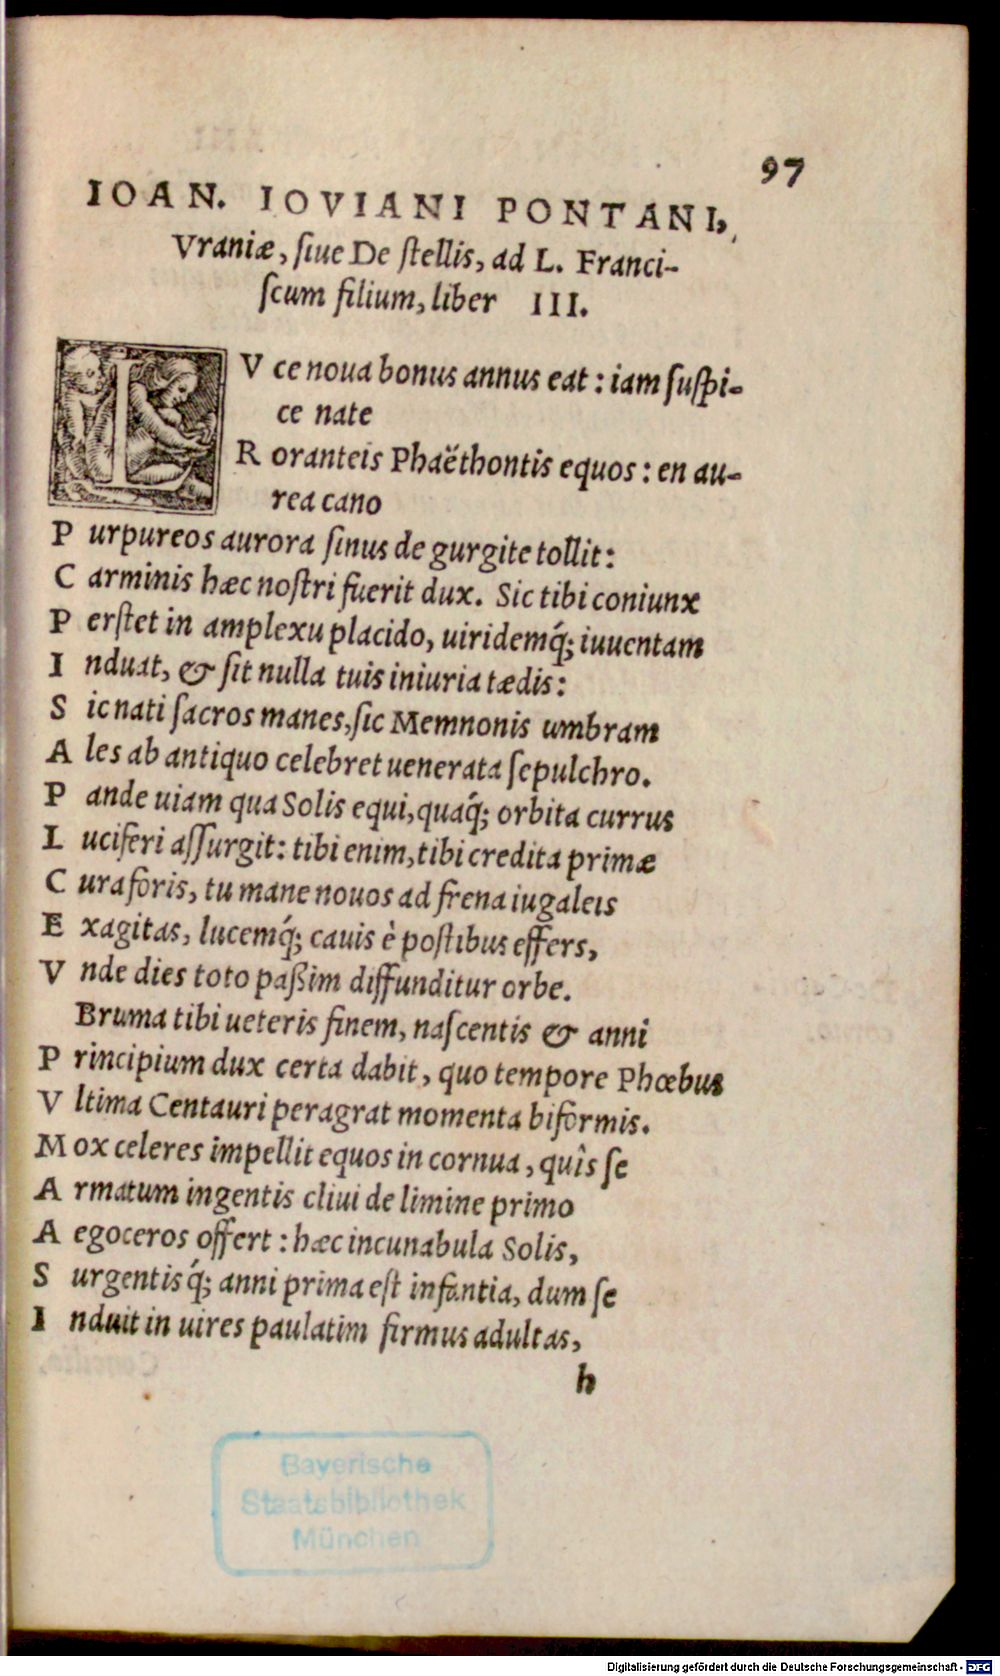 97
IOAN. IOVIANI PONTANI,
Vraniæ, ſiue De ſtellis, ad L. Franci-
ſcum filium, liber III.
LV ce noua bonus annus eat : iam ſuſpi-
ce nate
R oranteis Phaëthontis equos : en au-
rea cano
P urpureos aurora ſinus de gurgite tollit:
C arminis hæc noſtri fuerit dux. Sic tibi coniunx
P erſtet in amplexu placido, uiridemq́; iuuentam
I nduat, & ſit nulla tuis iniuria tædis:
S ic nati ſacros manes, ſic Memnonis umbram
A les ab antiquo celebret uenerata ſepulchro.
P ande uiam qua Solis equi, quaq́; orbita currus
L uciferi aſſurgit: tibi enim, tibi credita primæ
C ura foris, tu mane nouos ad frena iugaleis
E xagitas, lucemq́; cauis è poſtibus effers,
V nde dies toto paßim diffunditur orbe.
Bruma tibi ueteris finem, naſcentis & anni
P rincipium dux certa dabit, quo tempore Phœbus
V ltima Centauri peragrat momenta biformis.
M ox celeres impellit equos in cornua, quîs ſe
A rmatum ingentis cliui de limine primo
A egoceros offert : hæc incunabula Solis,
S urgentisq́; anni prima eſt infantia, dum ſe
I nduit in uires paulatim firmus adultas,
h
Bayerische
Staatsbibliothek
München
Digitalisierung gefördert durch die Deutsche Forschungsgemeinschaft - DFG